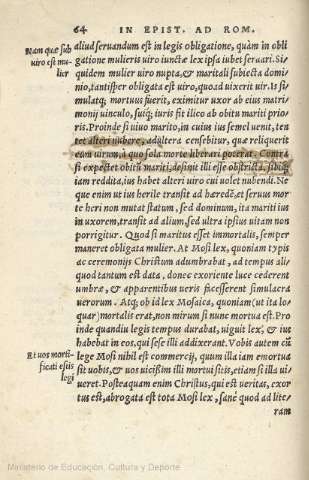 64 IN EPIST. AD ROM.
Nam quæ sub
uiro est mu-
lier
aliud seruandum est in legis obligatione, quàm in obli
gatione mulieris uiro iunctæ lex ipsa iubet seruari. Si
quidem mulier uiro nupta, & maritali subiecta domi
nio, tantisper obligata est uiro, quoad uixerit uir. Is si-
mulatq; mortuus fuerit, eximitur uxor ab eius matri-
monij uinculo, suiq; iuris fit ilico ab obitu mariti prio-
ris. Proinde si uiuo marito, in cuius ius semel uenit, ten
tet alteri nubere, adultera censebitur, quæ reliquerit
eum uirum, à quo sola morte liberari poterat. Contra
si expectet obitũ mariti, desinit illi esse obstricta, sibiq;
iam reddita, ius habet alteri uiro cui uolet nubendi. Ne
que enim ut ius herile transit ad hæredẽ, et seruus mor
te heri non mutat statum, sed dominum, ita mariti ius
in uxorem, transit ad alium, sed ultra ipsius uitam non
porrigitur. Quod si maritus esset immortalis, semper
maneret obligata mulier. At Mosi lex, quoniam typis
ac ceremonijs Christum adumbrabat, ad tempus ali-
quod tantum est data, donec exoriente luce cederent
umbræ, & apparentibus ueris facesserent simulacra
uerorum. Atq; ob id lex Mosaica, quoniam (ut ita lo-
quar) mortalis erat, non mirum si nunc mortua est. Pro
inde quandiu legis tempus durabat, uiguit lex, & ius
habebat in eos, qui sese illi addixerant. Vobis autem cũ
Et uos morti-
ficati estis
legi
lege Mosi nihil est commercij, quum illa iam emortua
sit uobis, & uos uicißim illi mortui sitis, etiam si illa ui-
ueret. Posteaquam enim Christus, qui est ueritas, exor
tus est, abrogata est tota Mosi lex, sanè quod ad lite-
ram
Ministerio de Educación, Cultura y Deporte